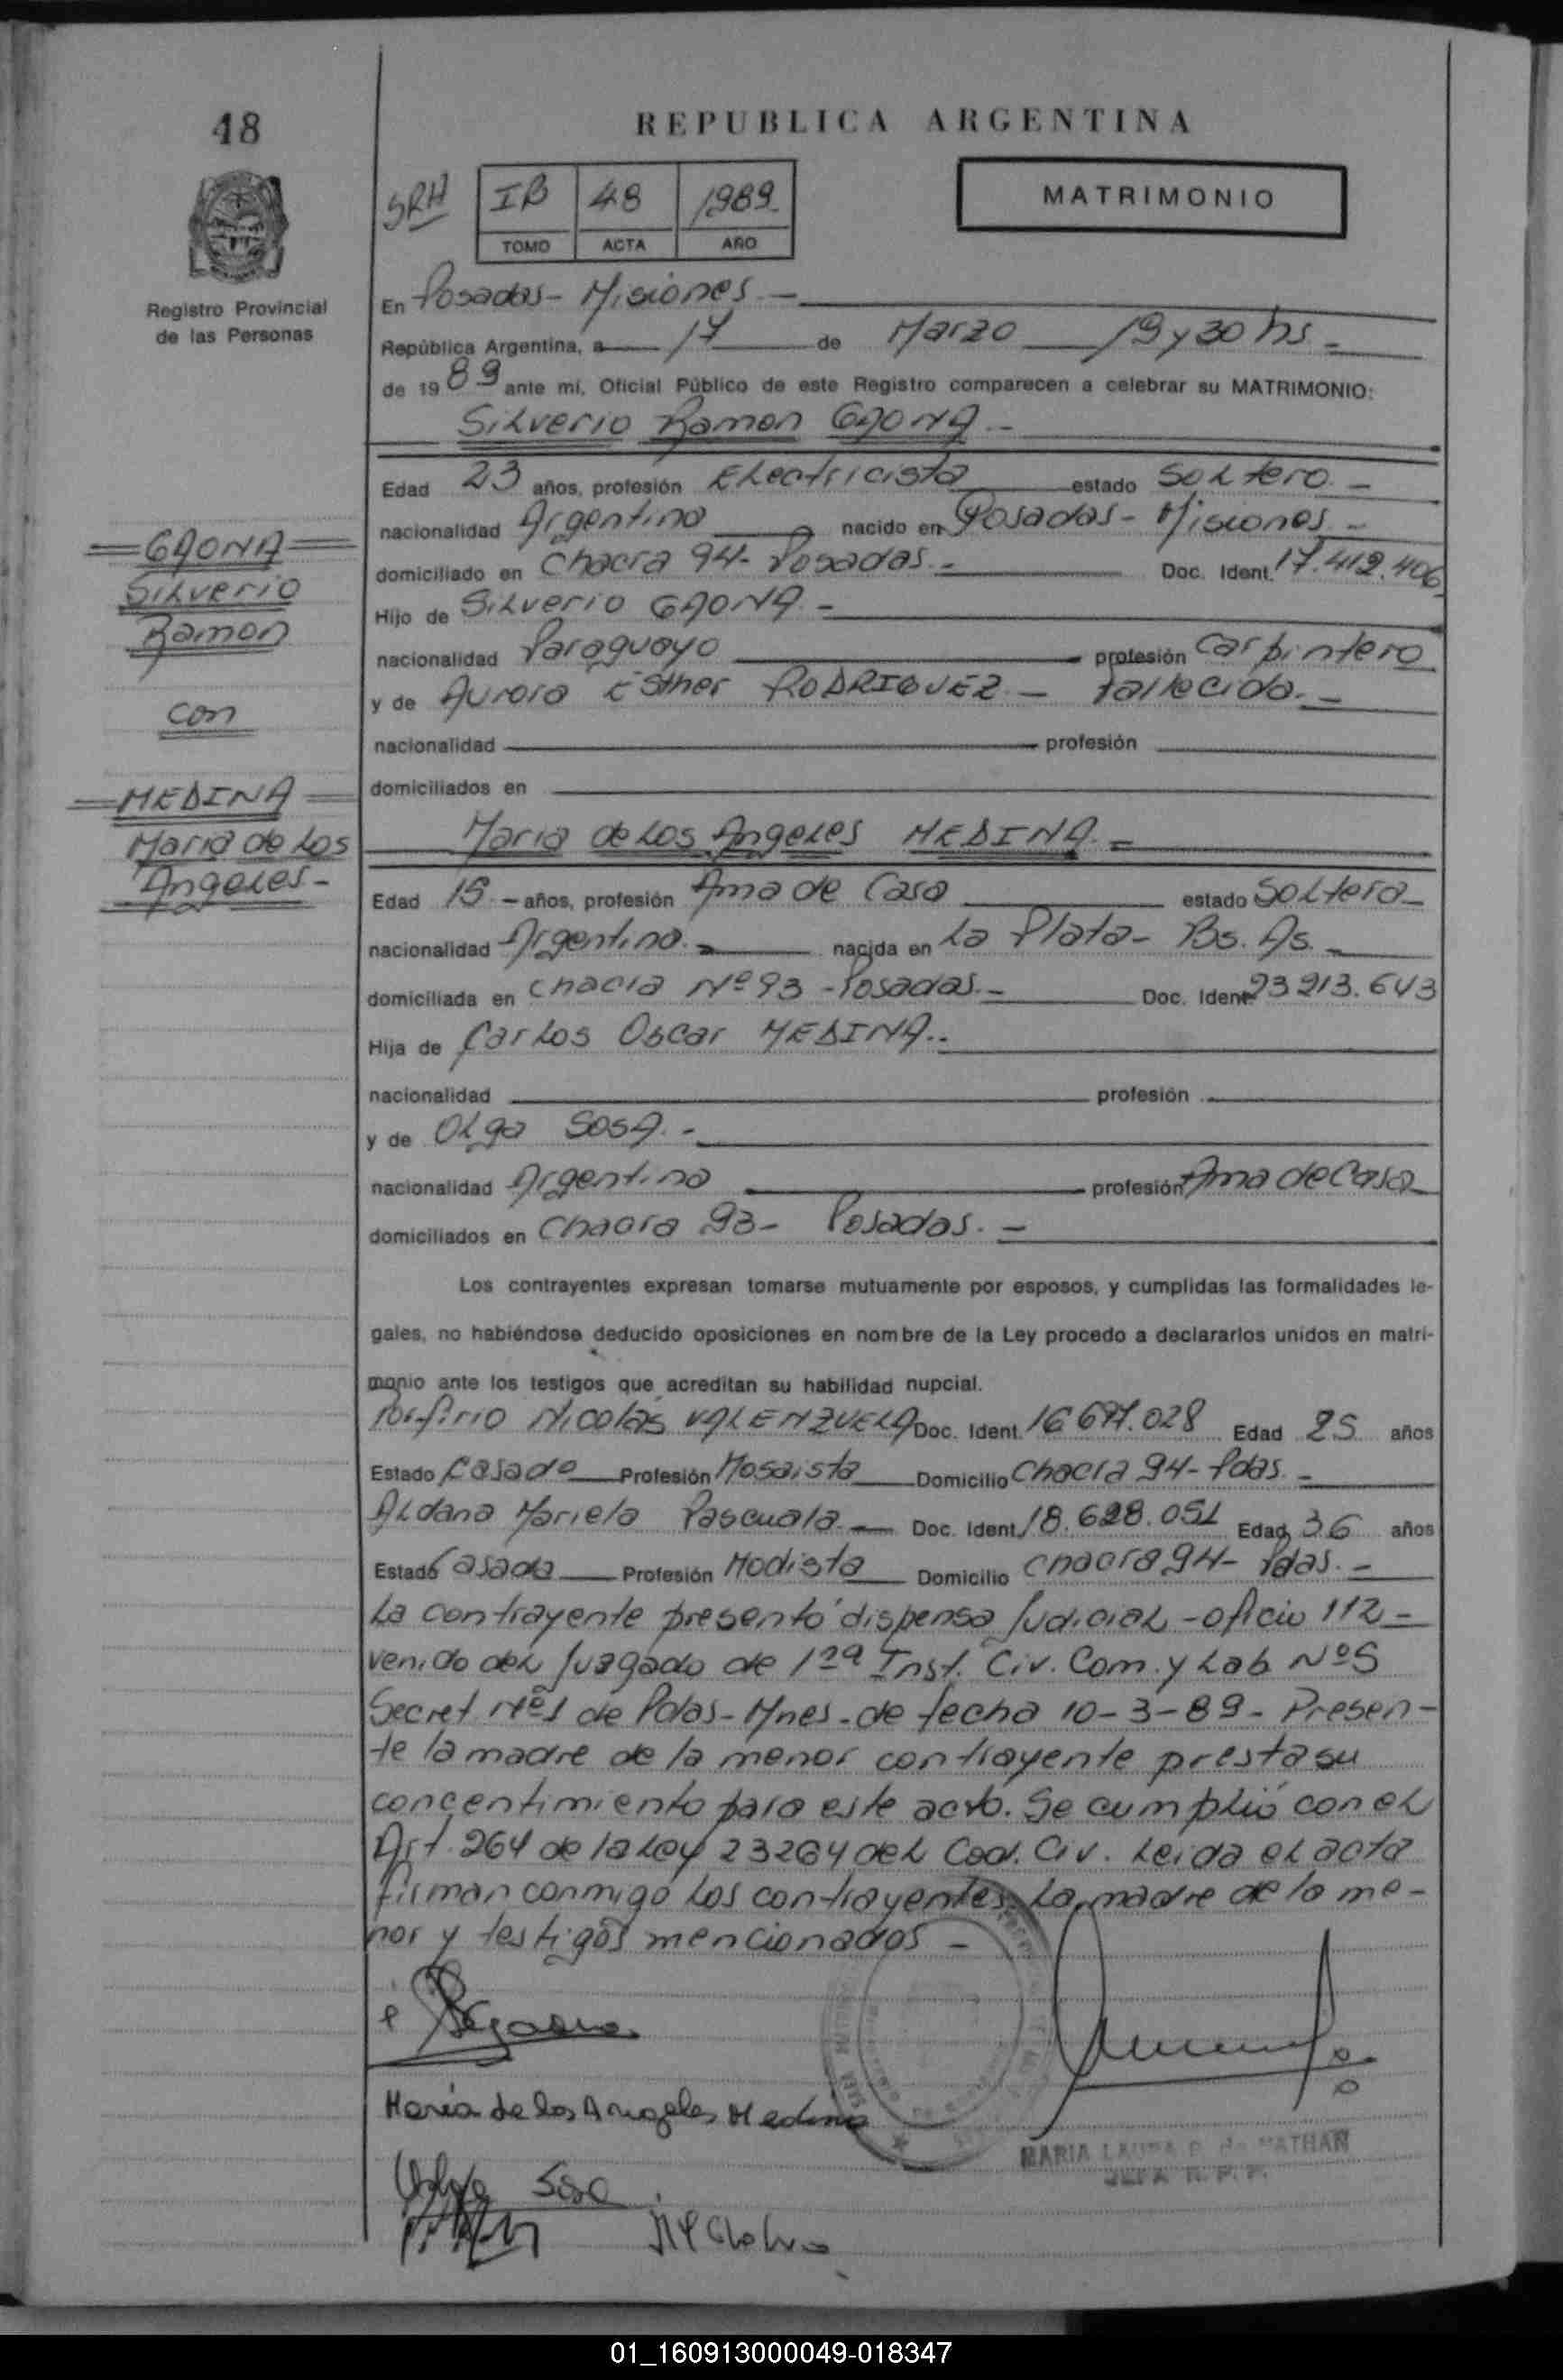 48
REPUBLICA ARGENTINA
SRH
IB 48 1989
TOMO ACTA AÑO
MATRIMONIO
Registro Provincial
de las Personas
En Posadas - Misiones.-
República Argentina, a 17 de Marzo 19 y 30 hs -
de 1989 ante mí, Oficial Público de este Registro comparecen a celebrar su MATRIMONIO:
Silverio Ramon GAONA -
Edad 23 años, profesión Electricista estado Soltero. -
nacionalidad Argentino nacido en Posadas - Misiones -
domiciliado en Chacra 94- Posadas. - Doc. Ident. 17.412.406
Hijo de Silverio GAONA. -
nacionalidad Paraguayo profesión Carpintero
y de Aurora Esther RODRIGUEZ. - Fallecida. -
nacionalidad profesión
domiciliados en
GAONA
Silverio
Ramon
con
MEDINA
Maria de Los
Angeles -
Maria de Los Angeles MEDINA. -
Edad 15 - años, profesión Ama de Casa estado Soltera -
nacionalidad Argentina. - nacida en La Plata - Bs. As. -
domiciliada en Chacra Nº 93 - Posadas. - Doc. Ident. 23 213.643
Hija de Carlos Oscar MEDINA. -
nacionalidad profesión
y de Olga SOSA. -
nacionalidad Argentina profesión Ama de Casa
domiciliados en Chacra 93 - Posadas. -
Los contrayentes expresan tomarse mutuamente por esposos, y cumplidas las formalidades le-
gales, no habiéndose deducido oposiciones en nombre de la Ley procedo a declararlos unidos en matri-
monio ante los testigos que acreditan su habilidad nupcial.
Porfirio Nicolás VALENZUELA Doc. Ident. 16 677.028 Edad 25 años
Estado Casado Profesión Mosaista Domicilio Chacra 94 - Pdas. -
Aldana Mariela Pascuala. - Doc. Ident. 18.628.051 Edad 36 años
Estado Casada Profesión Modista Domicilio Chacra 94 - Pdas. -
La contrayente presentó dispensa Judicial - oficio 112 -
venido del Juzgado de 1ra Inst. Civ. Com. y Lab. Nº5
Secret. Nº1 de Pdas - Mnes - de fecha 10-3-89 - Presen-
te la madre de la menor contrayente presta su
concentimiento para este acto. Se cumplió con el
Art. 264 de la Ley 23264 del Cod. Civ. Leida el acta
firman conmigo Los contrayentes, La madre de la me-
nor y testigos mencionados -
Maria de los Angeles Medina
Olga Sosa
MARIA LAURA de NATHAN
JEFA R. P. P.
01_160913000049-018347